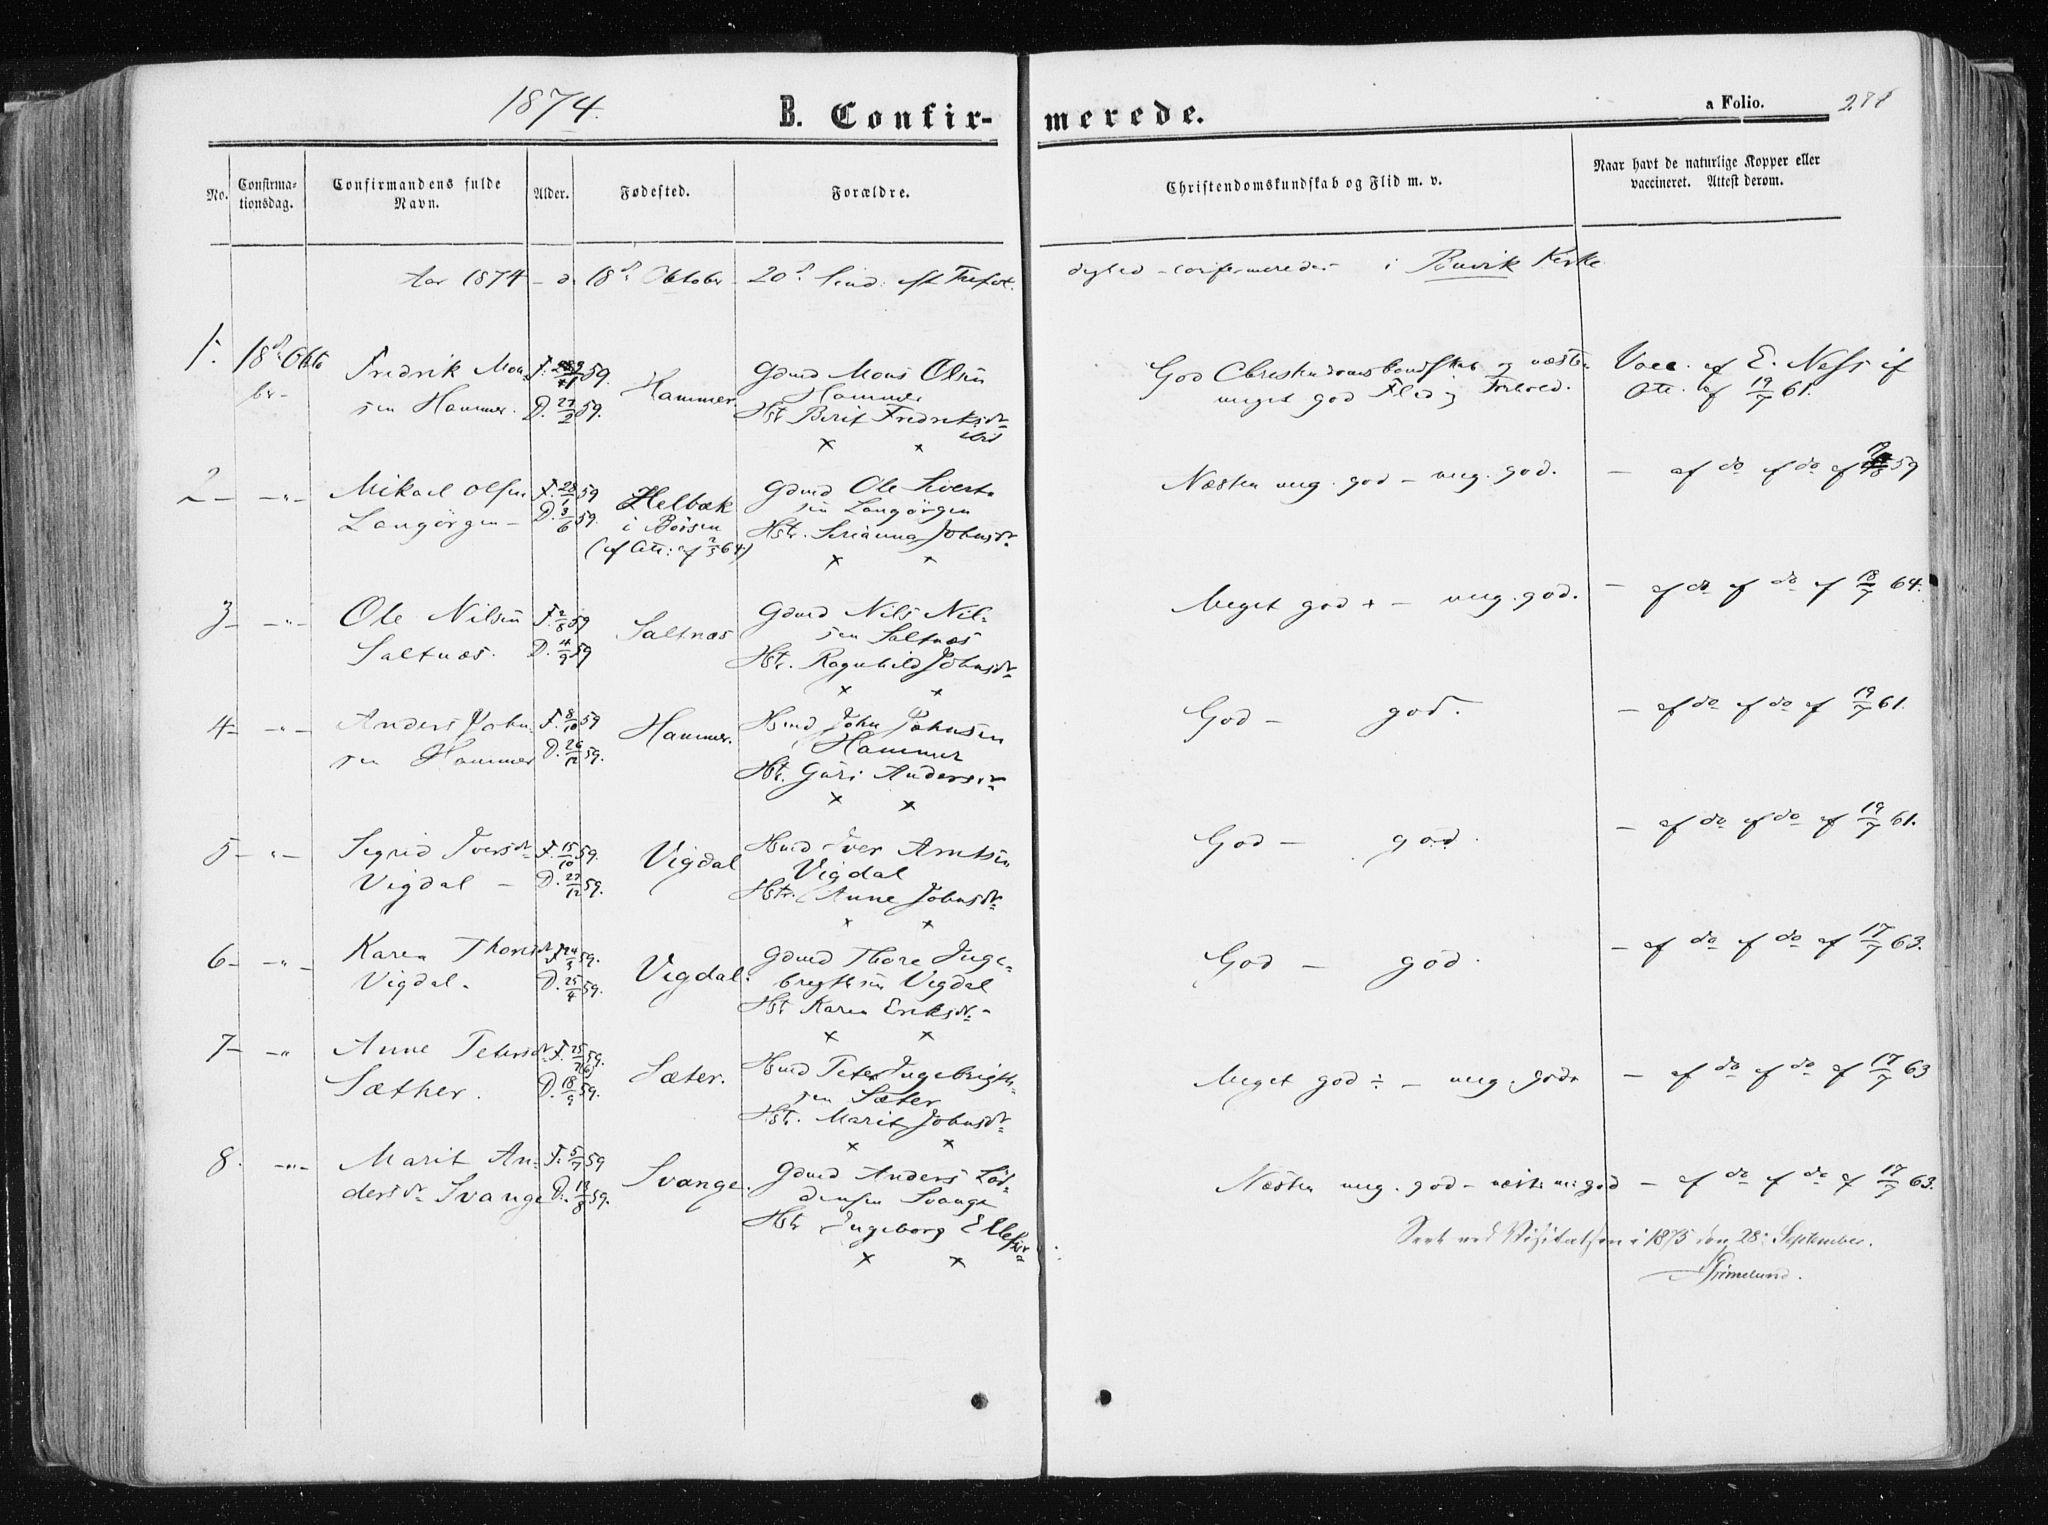 1874.
B. Confir-
merede.
a Folio.
No.
Confirma-
tionsdag.
Confirmandens fulde
Navn.
Alder.
Fødested.
Forældre.
Christendomskundskab og Flid m. v.
Naar havt de naturlige Kopper eller
vaccineret. Attest derom.
Aar 1874 - d. 18de Oktober - 20de Sind. eft. Trefol.
dighed - confirmeredes i Buvik Kirke.
1. 18de Okto
ber -
Fredrik Mon-
sen Hammer.
F. 59.
D. 27/2 59.
Hammer.
Gdmd Mons Olsen
Hammer
Hst. Berit Fredriksdr
ibid
x x
God Christendomskundskab og næsten
meget god Flid og Forhold.
Vacc. af E. Ness if
Att. af 19/7 61.
2 - -"-
Mikael Olsen
Langörgen -
F. 28/1 59
D. 3/6 59.
Helbæk
i Börsen
(if Att: af 2/5 64)
Gdmd Ole Sivert-
sen Langörgen
Hst. Serianna Johnsdr
x x
Næsten meg. god - meg. god.
- af do if do af 59
3 - -"-
Ole Nilsen
Saltnæs.
F. 2/8 59
D. 4/9 59
Saltnæs
Gdmd Nils Nil-
sen Saltnæs
Hst. Ragnhild Johnsdr
x x
Meget god + - meg. god.
- af do if do af 18/7 64.
4 - -"-
Anders John-
sen Hammer
F. 8/10 59
D. 26/12 59.
Hammer.
Hmd John Johnsen
Hammer
Hst. Guri Andersdr
x x
God - god.
- af do if do af 19/7 61.
5 - -"-
Sigrid Iversdr
Vigdal -
F. 15/10 59.
D. 27/12 59.
Vigdal
Hmd Iver Arntsen
Vigdal
Hst. Anne Johnsdr
x x
God - god.
- af do if do af 19/7 61.
6 - -"-
Karen Thoresdr
Vigdal.
F. 24/3 59.
D. 25/4 59.
Vigdal.
Gdmd Thore Inge-
brigtsen Vigdal
Hst Karen Eriksdr -
x x
God - god.
- af do if do af 17/7 63.
7 - -"
Anne Petersdr
Sæther.
F. 25/7 59.
D. 18/9 59.
Sæter.
Hmd Peter Ingebrigt-
sen Sæter
Hst. Marit Johnsdr
x x
Meget god ÷ - meg. god +
- af do if do af 17/7 63
8. -"-
Marit An-
dersdr Svange
F. 5/7 59
D. 13/8 59.
Svange.
Gdmd Anders Lod-
densen Svange
Hst Ingeborg Ellefsdr
x x
Næsten meg. god - næste m: god
- af do if do af 17/7 63.
Seet ved Visitatsen i 1875 den 28: September.
Grimelund.